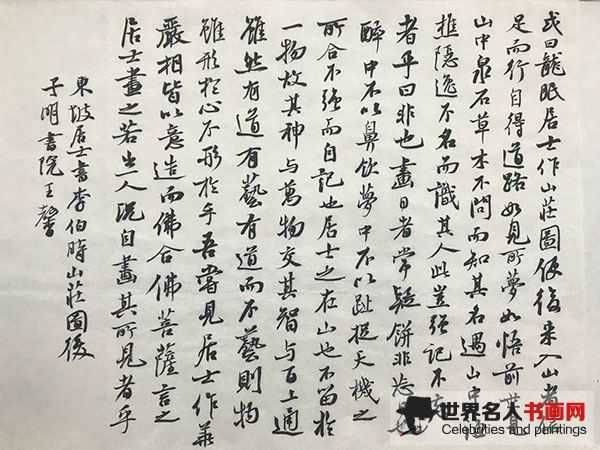 或曰龍眠居士作山莊圖使後来入山者信
足而行自得道路如見所夢如悟前世見
山中泉石草木不問而知其名遇山中漁
樵隐逸不名而識其人此豈强記不
者乎曰非也畫日者常疑餅非忘
醉中不以鼻飲夢中不以趾捉天機之
所合不强而自記也居士之在山也不留於
一物故其神與萬物交其智與百工通
雖然有道有藝有道而不藝則物
雖形於心不形於手吾嘗見居士作華
嚴相皆以意造而佛合佛菩薩言之
居士畫之若出一人況自畫其所見者乎
東坡居士書李伯時山莊圖後
子明書院王馨
世界名人书画网
Celebrities and paintings